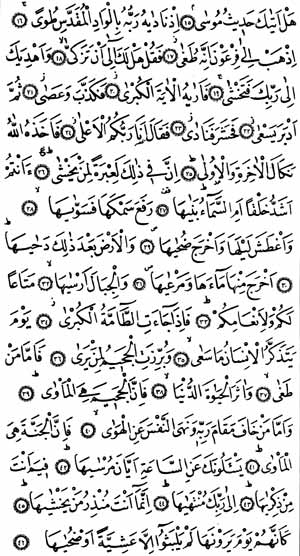 هَلْ أَتَىٰكَ حَدِيثُ مُوسَىٰ ١٥ إِذْ نَادَىٰهُ رَبُّهُ بِالْوَادِ الْمُقَدَّسِ طُوًى ١٦
اذْهَبْ إِلَىٰ فِرْعَوْنَ إِنَّهُ طَغَىٰ ١٧ فَقُلْ هَل لَّكَ إِلَىٰ أَن تَزَكَّىٰ ١٨ وَأَهْدِيَكَ
إِلَىٰ رَبِّكَ فَتَخْشَىٰ ١٩ فَأَرَىٰهُ الْآيَةَ الْكُبْرَىٰ ٢٠ فَكَذَّبَ وَعَصَىٰ ٢١ ثُمَّ
أَدْبَرَ يَسْعَىٰ ٢٢ فَحَشَرَ فَنَادَىٰ ٢٣ فَقَالَ أَنَا رَبُّكُمُ الْأَعْلَىٰ ٢٤ فَأَخَذَهُ اللَّهُ
نَكَالَ الْآخِرَةِ وَالْأُولَىٰ ٢٥ إِنَّ فِي ذَٰلِكَ لَعِبْرَةً لِّمَن يَخْشَىٰ ٢٦ ءَأَنتُمْ
أَشَدُّ خَلْقًا أَمِ السَّمَاءُ بَنَىٰهَا ٢٧ رَفَعَ سَمْكَهَا فَسَوَّىٰهَا ٢٨
وَأَغْطَشَ لَيْلَهَا وَأَخْرَجَ ضُحَىٰهَا ٢٩ وَالْأَرْضَ بَعْدَ ذَٰلِكَ دَحَىٰهَا
٣٠ أَخْرَجَ مِنْهَا مَاءَهَا وَمَرْعَىٰهَا ٣١ وَالْجِبَالَ أَرْسَىٰهَا ٣٢ مَتَاعًا
لَّكُمْ وَلِأَنْعَامِكُمْ ٣٣ فَإِذَا جَاءَتِ الطَّامَّةُ الْكُبْرَىٰ ٣٤ يَوْمَ
يَتَذَكَّرُ الْإِنسَانُ مَا سَعَىٰ ٣٥ وَبُرِّزَتِ الْجَحِيمُ لِمَن يَرَىٰ ٣٦ فَأَمَّا مَن
طَغَىٰ ٣٧ وَآثَرَ الْحَيَوٰةَ الدُّنْيَا ٣٨ فَإِنَّ الْجَحِيمَ هِيَ الْمَأْوَىٰ ٣٩
وَأَمَّا مَنْ خَافَ مَقَامَ رَبِّهِ وَنَهَى النَّفْسَ عَنِ الْهَوَىٰ ٤٠ فَإِنَّ الْجَنَّةَ هِيَ
الْمَأْوَىٰ ٤١ يَسْأَلُونَكَ عَنِ السَّاعَةِ أَيَّانَ مُرْسَىٰهَا ٤٢ فِيمَ أَنتَ
مِن ذِكْرَىٰهَا ٤٣ إِلَىٰ رَبِّكَ مُنتَهَىٰهَا ٤٤ إِنَّمَا أَنتَ مُنذِرُ مَن يَخْشَىٰهَا ٤٥
كَأَنَّهُمْ يَوْمَ يَرَوْنَهَا لَمْ يَلْبَثُوا إِلَّا عَشِيَّةً أَوْ ضُحَىٰهَا ٤٦